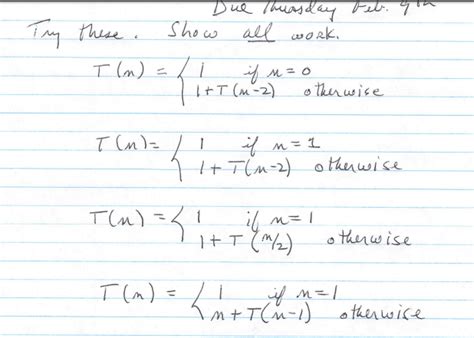 Due Thursday Feb. 9th
Try these. Show all work.
T(n) = { 1 if n = 0
1 + T(n-2) otherwise
T(n) = { 1 if n = 1
1 + T(n-2) otherwise
T(n) = { 1 if n = 1
1 + T(n/2) otherwise
T(n) = { 1 if n = 1
n + T(n-1) otherwise